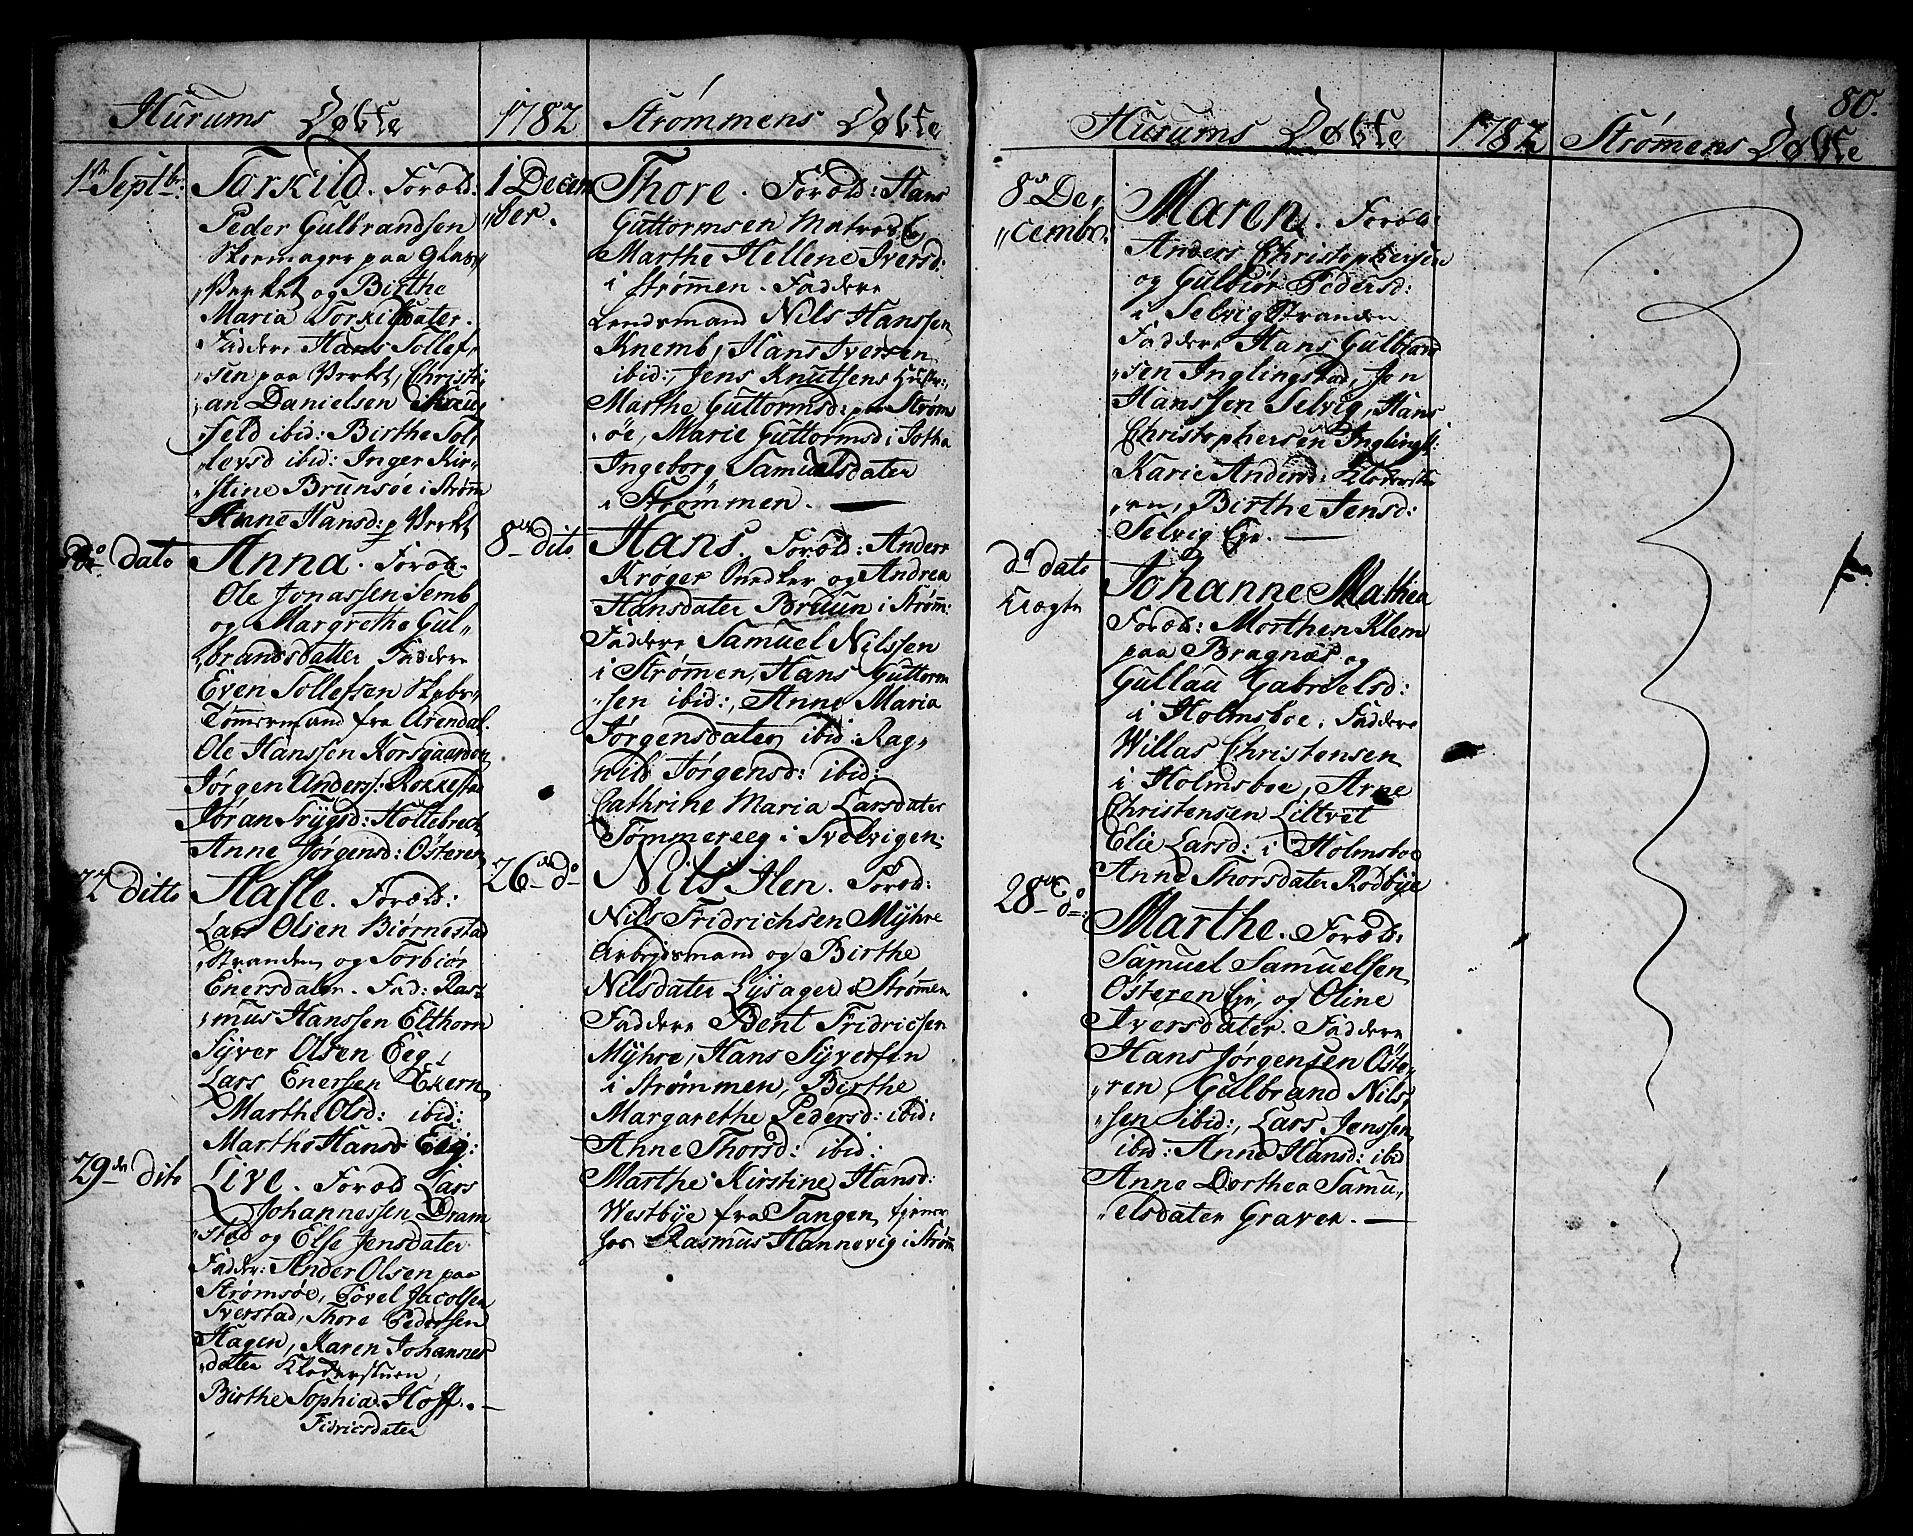 Hurums Døbte
1782
Strømmens Døbte
1ste Septbr:
Torkild. Foræld:
Peder Gulbrandsen
Skoemager paa Glas„
„Verket og Birthe
Maria Torkildsdater.
Faddere Hans Tollef„
„sen paa Verket, Christi„
„an Danielsen
„feld ibid: Birthe Sol„
„levsd ibid: Inger Kir„
„stine Brunsøe i Strøm̄
Anne Hansd: p Verket
do dato
Anna. Foræld.
Ole Jonassen Semb
og Margrethe Gul„
„brandsdatter Faddere
Even Tollefsen Skebs„
Tømermand fra Arendal.
Ole Hanssen Korsgaarden
Jørgen Anderss: Rokkestad
Jøran Trygsd: Holtebreck
Anne Jørgensd: Østeren
22 ditto
Aasle. Foræld:
Lars Olsen Biørnestad
„Stranden og Torbiør
Enersdater. Fad: Ras„
„mus Hanssen Elthorn
Syver Olsen Eeg,
Lars Enersen Ekern,
Marthe Olsd: ibid:
Marthe Hansd Eeg:
29de dito
Live. Foræd Lars
Johannessen Dram„
„stad og Else Jensdater
Fadder: Ander Olsen paa
Strømsøe, Povel Jacobsen
Tverstad, Thore Pedersen
Hagen, Karen Johannes„
„dater Klokerstuen,
Birthe Sophia Hoff.
Fidricsdater
1 Decem„
„ber.
Thore. Foræld: Hans
Guttormsen Matros &
Marthe Hellene Iversd:
i Strømmen. Faddere
Lendsmand Nils Hanssen
Knemb, Hans Iversen
ibid:, Jens Knutsens Hustr:,
Marthe Guttormsd: paa Strøms„
„øe, Marie Guttormsd:
Ingeborg Samuelsdater
i Strømmen.
8de dito
Hans. Foræld: Anders
Krøger Snedker og Andrea
Hansdater Bruun i Strøm̄:
Faddere Samuel Nilssen
i Strøm̄en, Hans Guttorm„
„sen ibid:, Anne Maria
Jørgensdater ibid: Rag„
nild Jørgensd: ibid:
Cathrine Maria Larsdater
Tømmereeg i Svelvigen:
26de do
Nils Ilen. Foræd:
Nils Fridrichsen Myhre
Arbejdsmand og Birthe
Nilsdater Lysager i Strøm̄en
Faddere Bent Fridricsen
Myhre, Hans Syversen
i Strømmen, Birthe
Margarethe Pedersd: ibid:
Anne Thorsd: ibid:
Marthe Kirstine Hansd:
Westbye fra Tangen, tjener
hos Rasmus Hannevig i Strøm̄
80.
Hurums Døbte
1782
Strøm̄ens Døbte
8de De„
„cembr.
Maren. Foræld:
Anders Christophersen
og Gulbiør Pedersd:
i Selvig Stranden
Faddere Hans Gulbrand„
„sen Inglingstad, Jen
Hanssen Selvig, Hans
Christophersen Inglingst:
Karie Andersd: Klokerstu„
„en, Birthe Jensd:
Selvig Eje.
do dato
Johanne Mathea
Foræld: Morthen Klem
paa Bragnæs og
Gullau Gabrielsd:
i Holmsboe. Faddere
Willas Christensen
i Holmsboe, Arne
Christensen Liltvet
Elie Larsd: i Holmsboe
Anne Thorsdater Rødbye
28de do:
Marthe. Foræld:
Samuel Samuelsen
Østeren Eje, og Oline
Iversdater. Faddere
Hans Jørgensen Øste„
„ren, Gulbrand Nils„
„sen ibid:, Lars Jenssen
ibid: Anne Hansd: ibid
Anne Dorthea Samu„
„elsdater Graver.